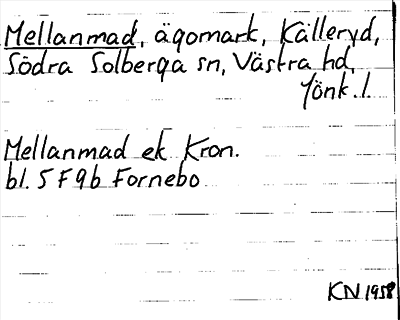 Mellanmad, ägomark, Källeryd,
Södra Solberga sn, Västra hd,
Jönk. l.
Mellanmad ek Kron.
bl. 5 F 9 b Fornebo
KN 1958